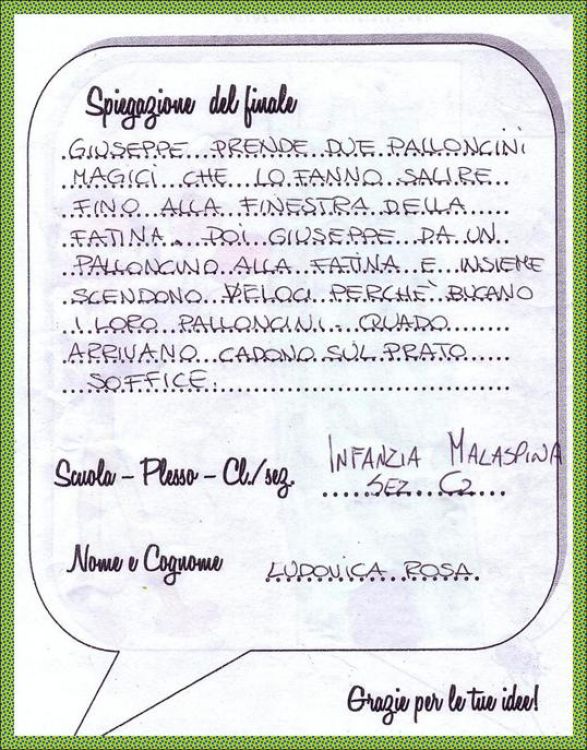 Spiegazione del finale
GIUSEPPE PRENDE DUE PALLONCINI
MAGICI CHE LO FANNO SALIRE
FINO ALLA FINESTRA DELLA
FATINA. POI GIUSEPPE DA UN
PALLONCINO ALLA FATINA E INSIEME
SCENDONO VELOCI PERCHE' BUCANO
I LORO PALLONCINI. QUADO
ARRIVANO CADONO SUL PRATO
SOFFICE.
Scuola - Plesso - Cl./sez. INFANZIA MALASPINA
SEZ. C2
Nome e Cognome LUDOVICA ROSA
Grazie per le tue idee!